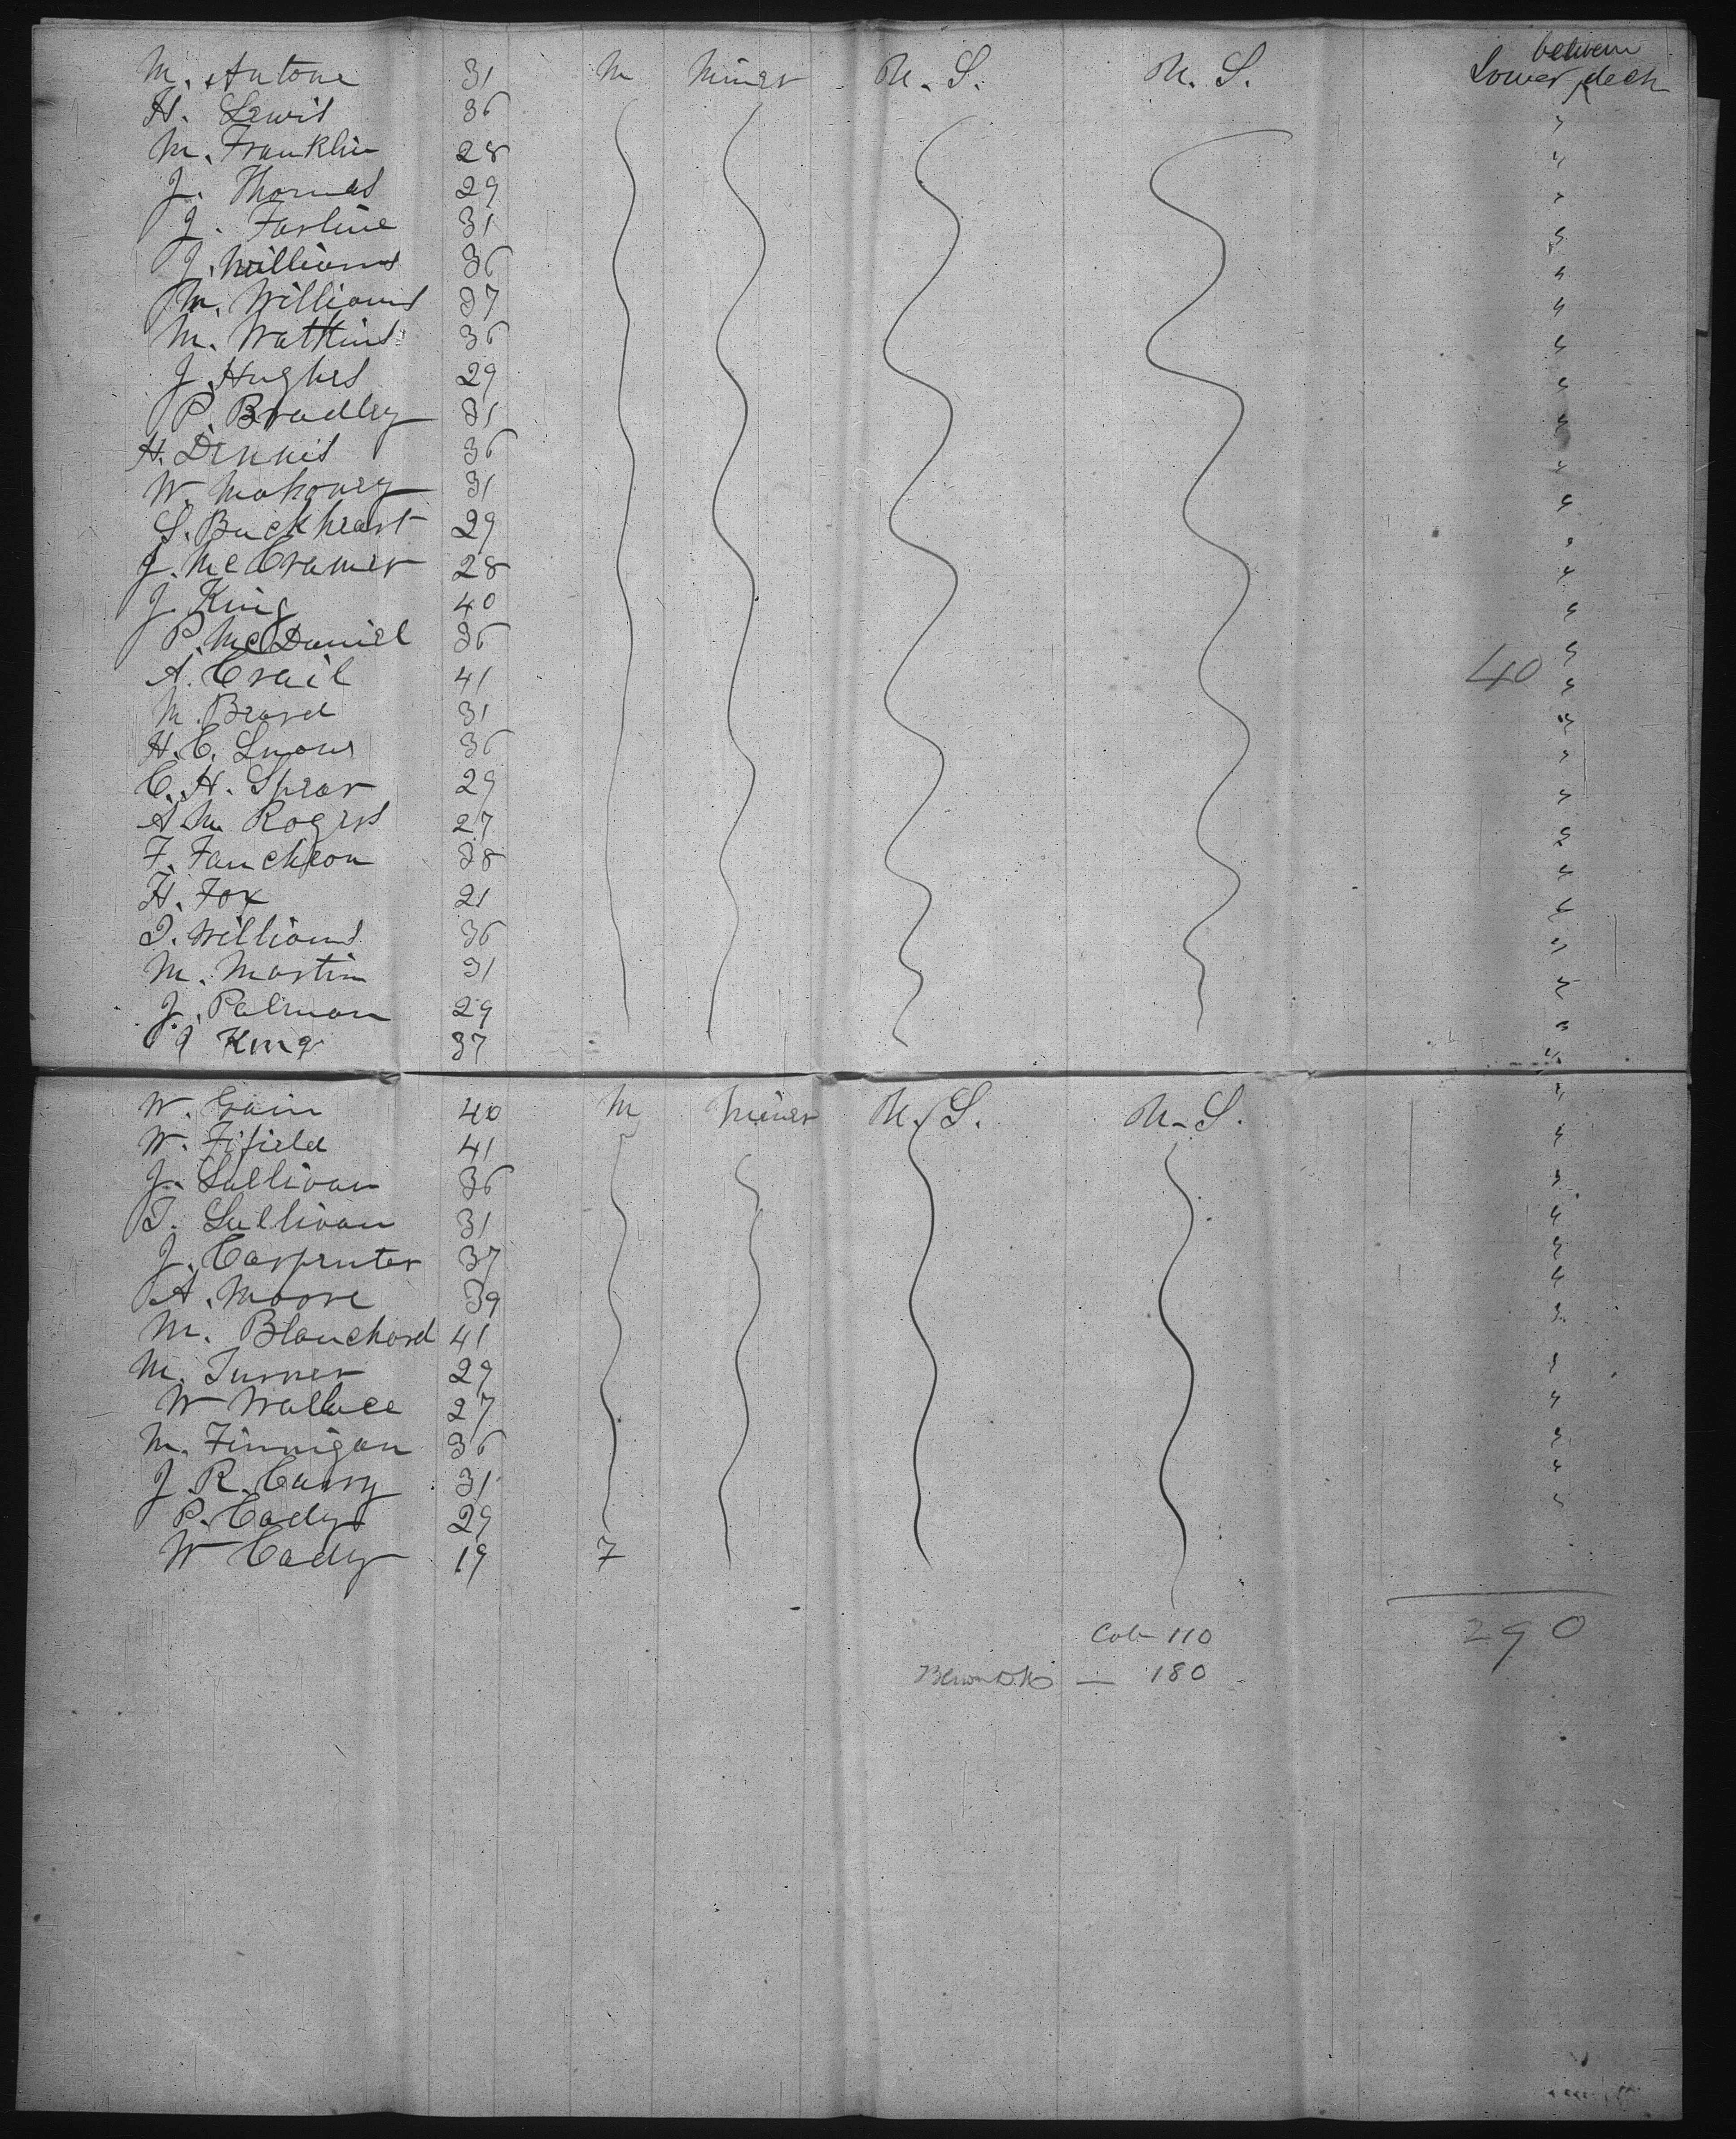 between
M. Antone 31 M Miner U.S. U.S. Lower deck
H. Lewis 36 "
M. Franklin 28 "
J. Thomas 29 "
J. Farline 31 "
J. Williams 36 "
M. Williams 37 "
M. Watkins 36 "
J. Hughes 29 "
P. Bradley 31 "
H. Dennis 36 "
W. Mahoney 31 "
S. Buckheart 29 "
J. McCramer 28 "
J. King 40 "
P. McDaniel 36 "
A. Crail 41 " 40
M. Brard 31 "
H. C. 36 "
C. H. Spear 29 "
A M Rogers 27 "
F. Fancheon 38 "
H. Fox 21 "
I. Williams 36 "
M. Martin 31 "
J. Palman 29 "
J King 37 "
W. Cain 40 M Miner U.S. U.S. "
W. Fifield 41 "
J. Sullivan 36 "
T. Sullivan 31 "
J. Carpenter 37 "
A. Moore 39 "
M. Blanchard 41 "
M. Turner 29 "
W Wallace 27 "
M. Finnigan 36 "
J. R. 31 "
P. Cady 29 "
W Cady 19 F
Cab 110 290
— 180